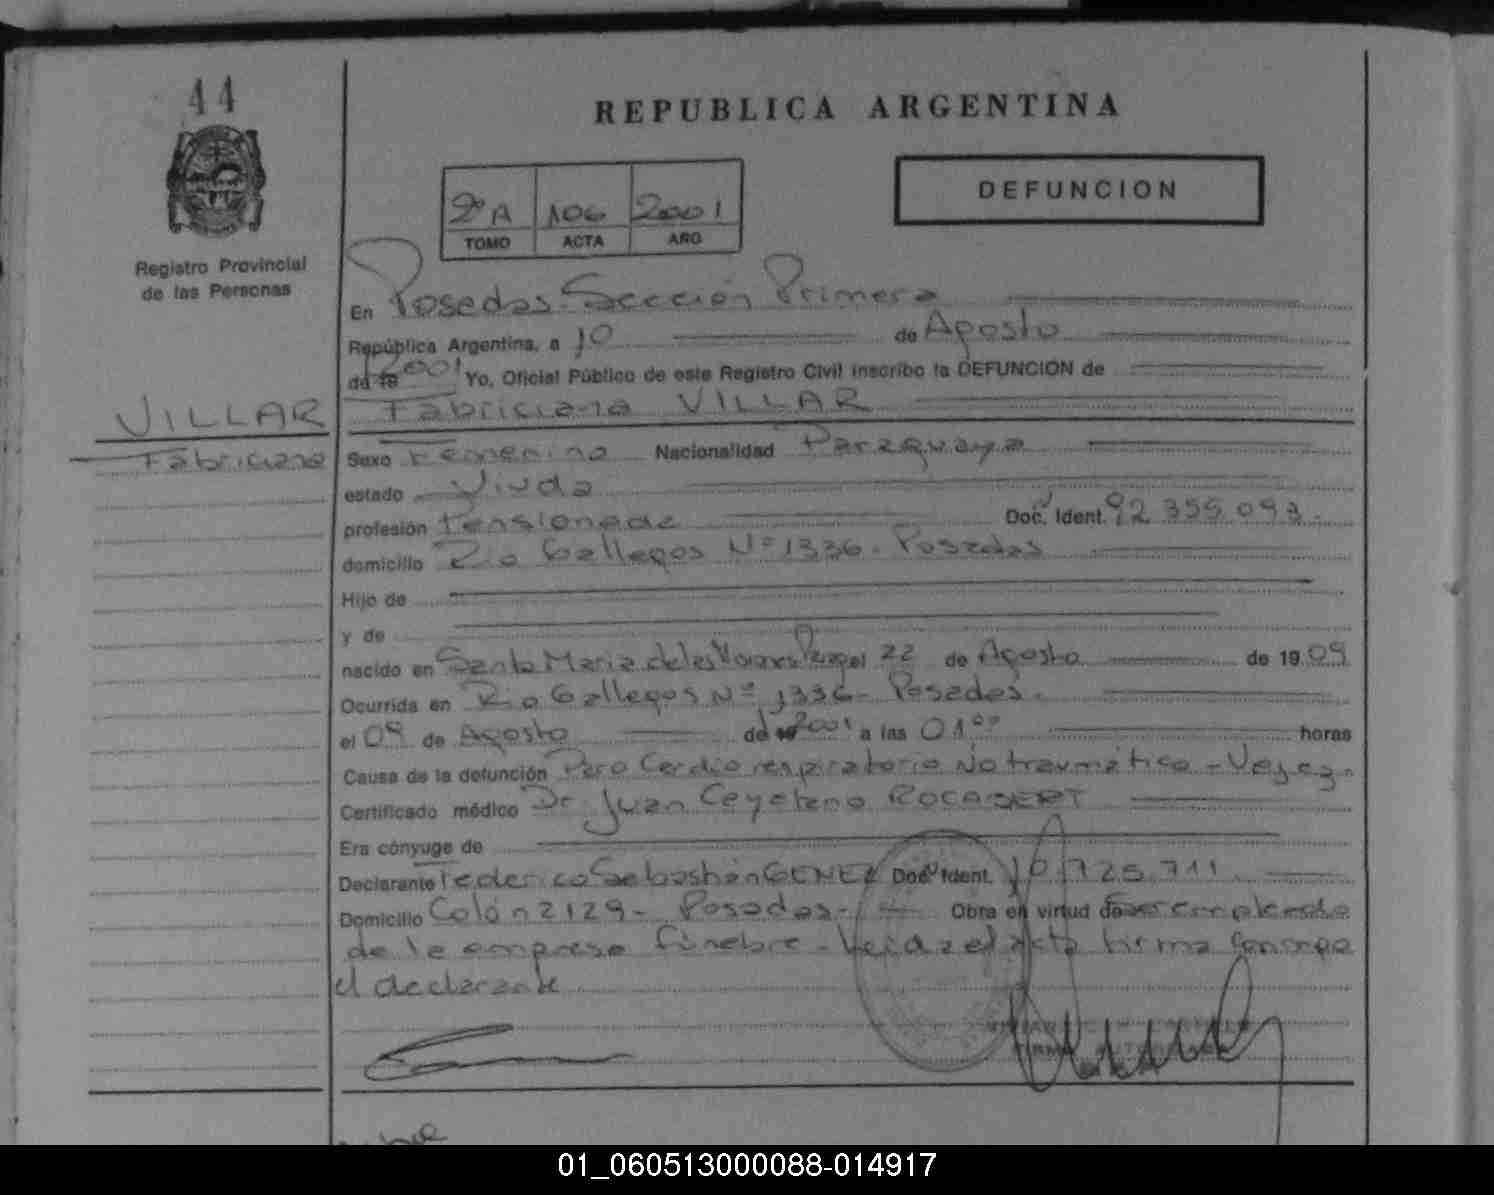 44
REPUBLICA ARGENTINA
DEFUNCION
2º A 106 2001
TOMO ACTA AÑO
Registro Provincial
de las Personas
En Posadas Sección Primera
República Argentina, a 10 de Agosto
de 19 2001 Yo, Oficial Público de este Registro Civil inscribo la DEFUNCION de
Fabriciana VILLAR
VILLAR
Fabriciana
Sexo Femenino Nacionalidad Paraguaya
estado Viuda
profesión Pensionada Doc. Ident. 92.355.093.
domicilio Rio Gallegos Nº 1336. Posadas
Hijo de
y de
nacido en Santa Maria de las el 22 de Agosto de 19 09
Ocurrida en Rio Gallegos Nº 1336 - Posadas.
el 09 de Agosto de 19 2001 a las 01ºº horas
Causa de la defunción Paro Cardio respiratorio No traumático - Vejez.
Certificado médico Dr. Juan Cayetano ROCABERT
Era cónyuge de
Declarante Federico Sebastián GENEZ Doc. Ident. 10.725.711
Domicilio Colón 2129 - Posadas - Obra en virtud de Ser empleado
de la empresa fúnebre - Leida el acta firma conmigo
el declarante
01_060513000088-014917